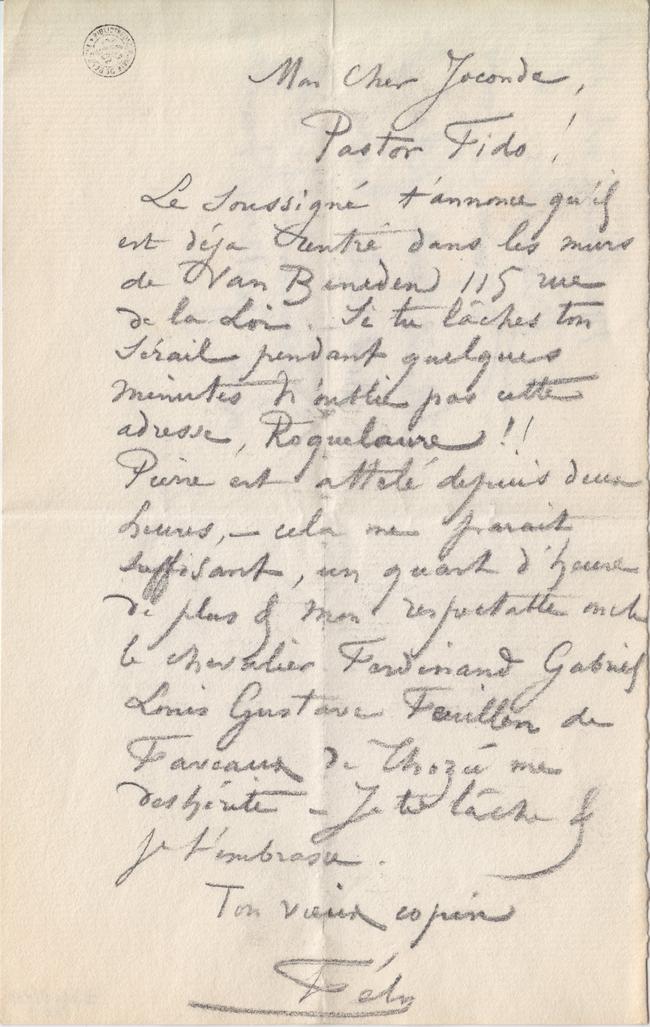 Mon Cher Joconde,
Pastor Fido !
Le Soussigné t'annonce qu'il
est déja rentré dans les murs
de Van Beneden 115 rue
de la Loi. Si tu lâches ton
Sérail pendant quelques
minutes n'oublie pas cette
adresse, Roquelaure !!
Pierre est attelé depuis deux
heures, — cela me parait
suffisant, un quart d'heure
de plus & mon respectable oncle
le chevalier Ferdinand Gabriel
Louis Gustave Feuillen de
Faveaux de Thozée me
deshérite — Je te lâche &
je t'embrasse.
Ton vieux copin
Fély